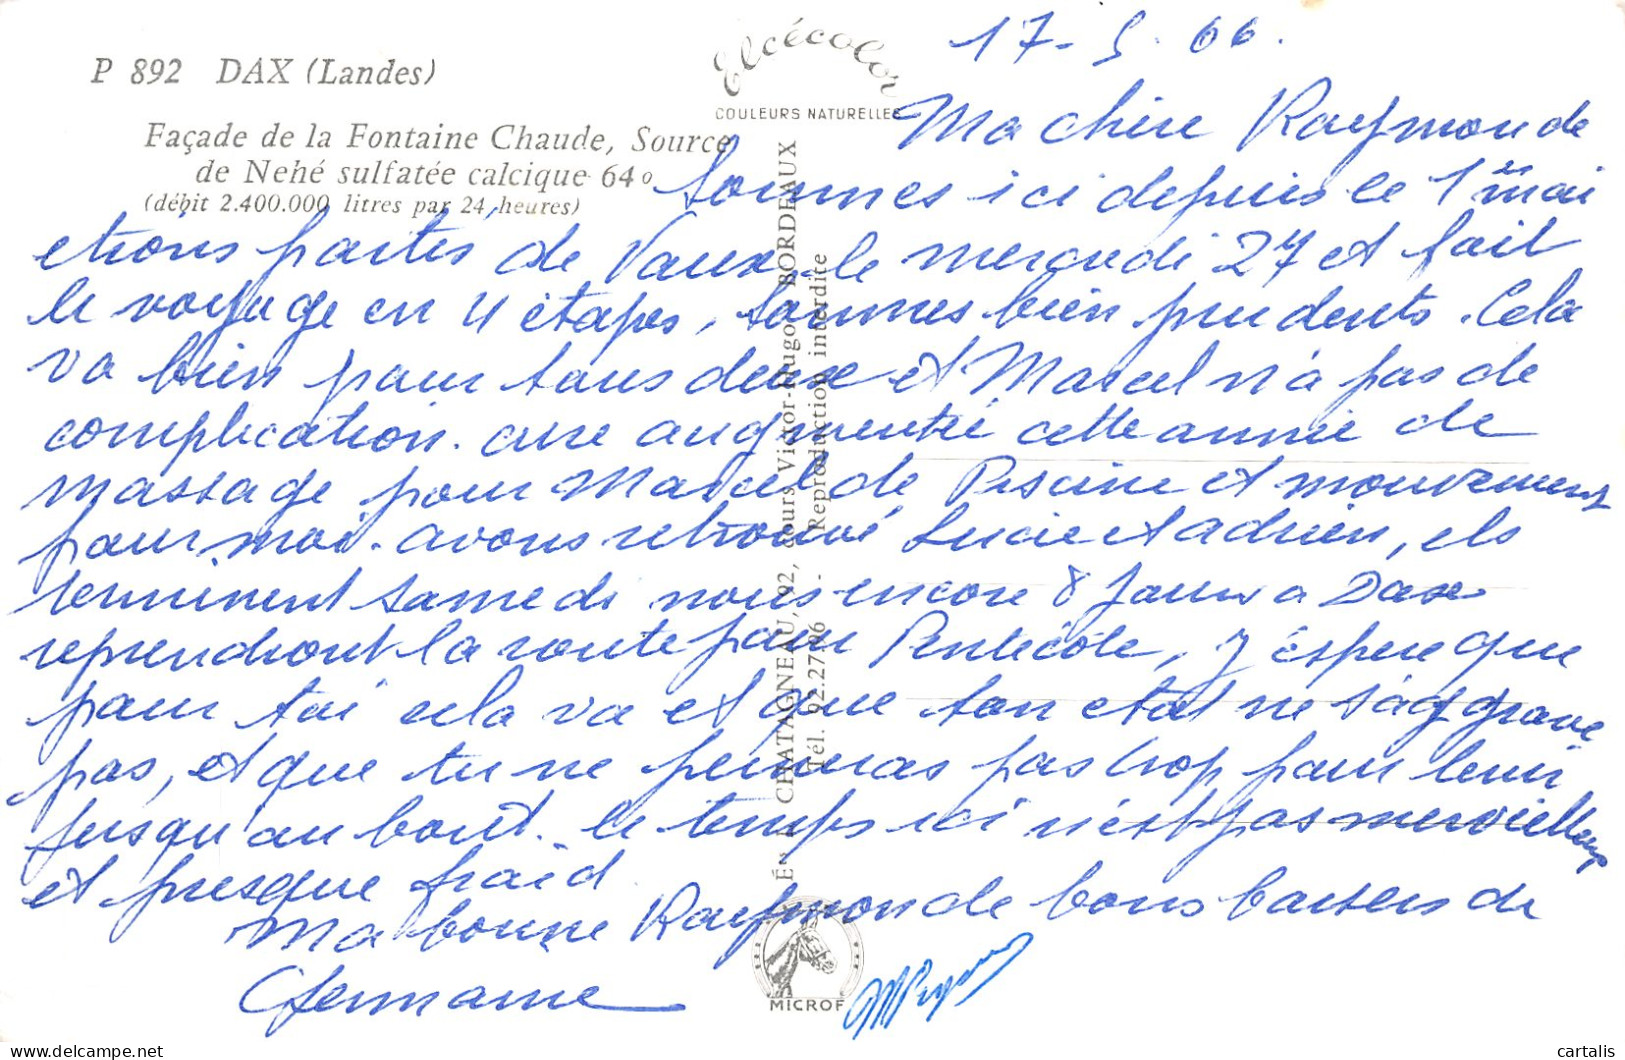 P 892 DAX (Landes)
Façade de la Fontaine Chaude, Source
de Nehé sulfatée calcique 64°
(débit 2.400.000 litres par 24 heures)
Elcécolor
COULEURS NATURELLES
17-5-66.
Ma chère Raymonde
Sommes ici depuis le 1er mai
étions partis de Vaux le mercredi 27 et fait
le voyage en 4 étapes, sommes bien prudents. Cela
va bien pour tous deux et Marcel n'a pas de
complication. cure augmentée cette année de
massage pour Marcel de Piscine et mouvement
pour moi. avons retrouvé Lucie et adrien, ils
terminent samedi nous encore 8 jours a Dax
reprendront la route pour Pentecôte, j'éspère que
pour toi cela va et que ton état ne s'aggrave
pas, et que tu ne peineras pas trop pour tenir
jusqu'au bout. le temps ici n'est pas merveilleux
et presque froid
Ma bonne Raymonde bons baisers de
Germaine
Éd. CHATAGNEAU, 92, cours Victor-Hugo, BORDEAUX
Tél. 92.27.96 - Reproduction interdite
MICROF
cartalis